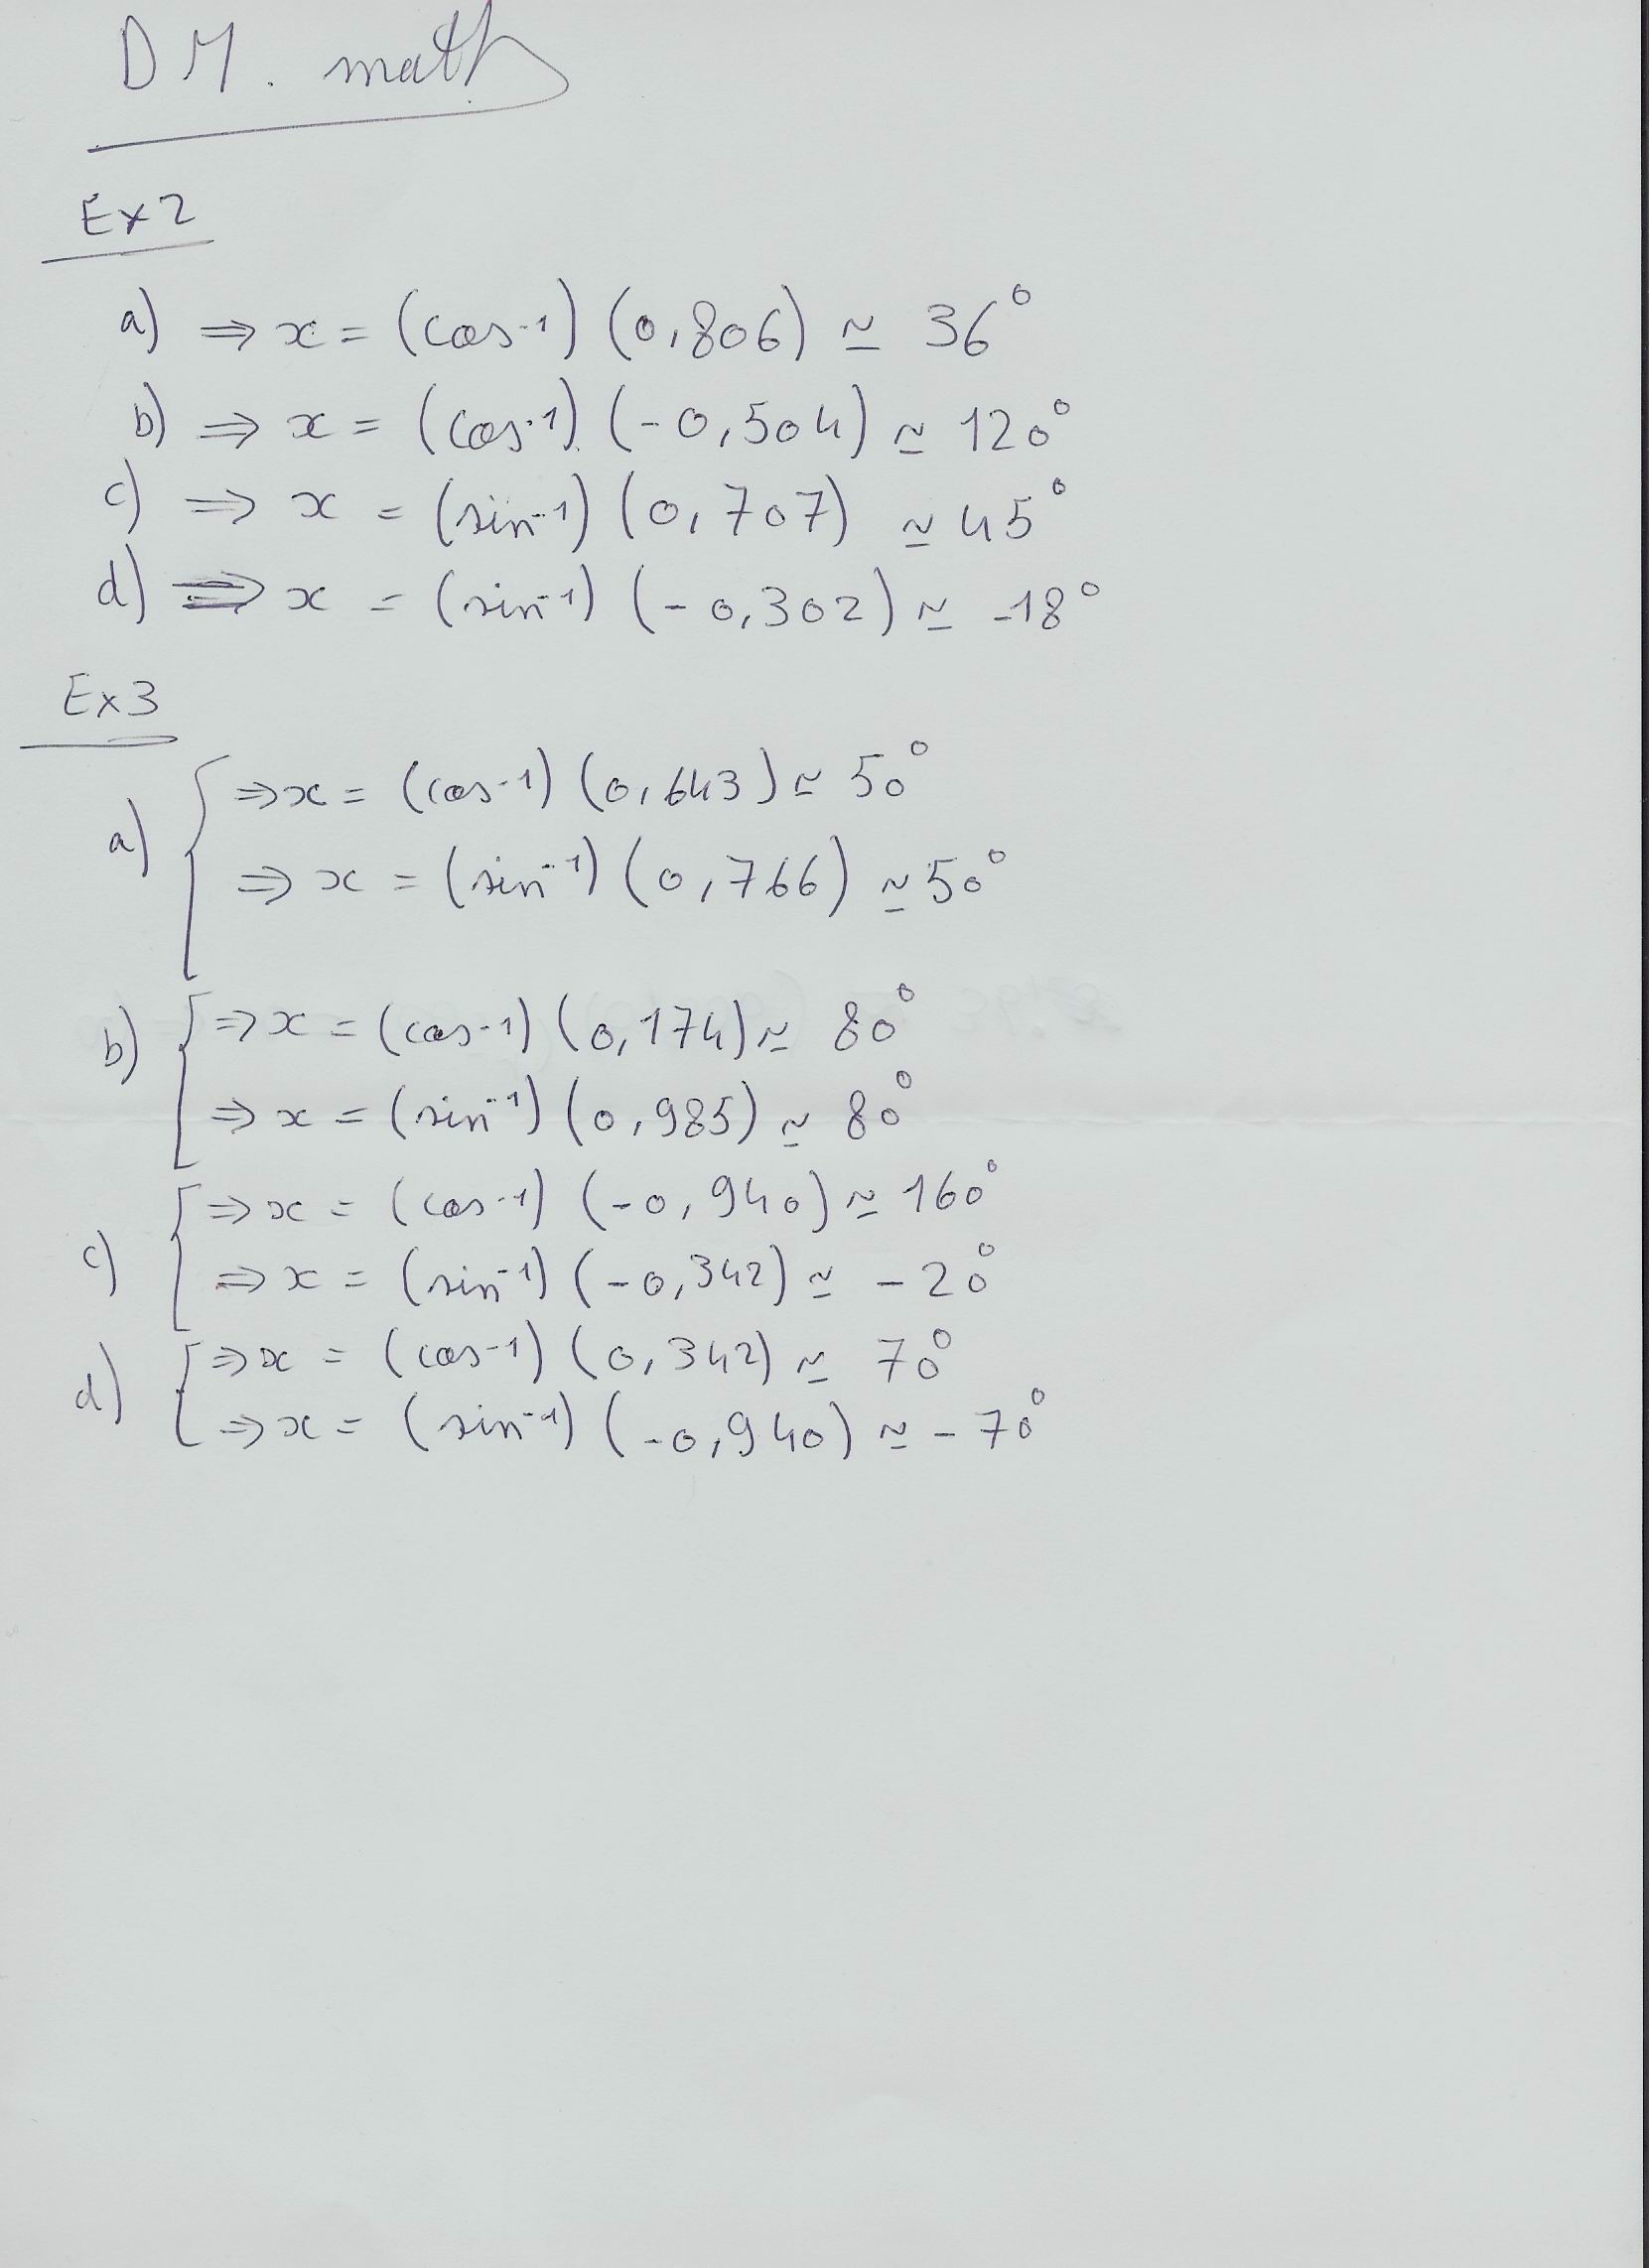 DM. math
Ex2
a) ⇒ x = (cos-1) (0,806) ≃ 36°
b) ⇒ x = (cos-1) (-0,504) ≃ 120°
c) ⇒ x = (sin-1) (0,707) ≃ 45°
d) ⇒ x = (sin-1) (-0,302) ≃ -18°
Ex3
a) { ⇒ x = (cos-1) (0,643) ≃ 50°
⇒ x = (sin-1) (0,766) ≃ 50°
b) { ⇒ x = (cos-1) (0,174) ≃ 80°
⇒ x = (sin-1) (0,985) ≃ 80°
c) { ⇒ x = (cos-1) (-0,940) ≃ 160°
⇒ x = (sin-1) (-0,342) ≃ -20°
d) { ⇒ x = (cos-1) (0,342) ≃ 70°
⇒ x = (sin-1) (-0,940) ≃ -70°